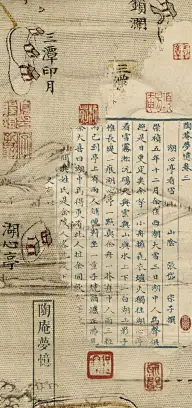 鎖瀾
三潭印月
三潭
陶庵夢憶卷二
湖心亭看雪 山陰 張岱 宗子撰
崇禎五年十二月余住西湖大雪三日湖中人鳥聲俱
絕是日更定矣余拏一小舟擁毳衣爐火獨往湖心亭
看雪霧凇沆碭天與雲與山與水上下一白湖上影子
惟長堤一痕湖心亭一點與余舟一芥舟中人兩三粒
而已到亭上有兩人鋪氈對坐一童子燒酒爐正沸見
余大喜曰湖中焉得更有此人拉余同飲
姓氏是金陵人
湖心亭
陶庵夢憶